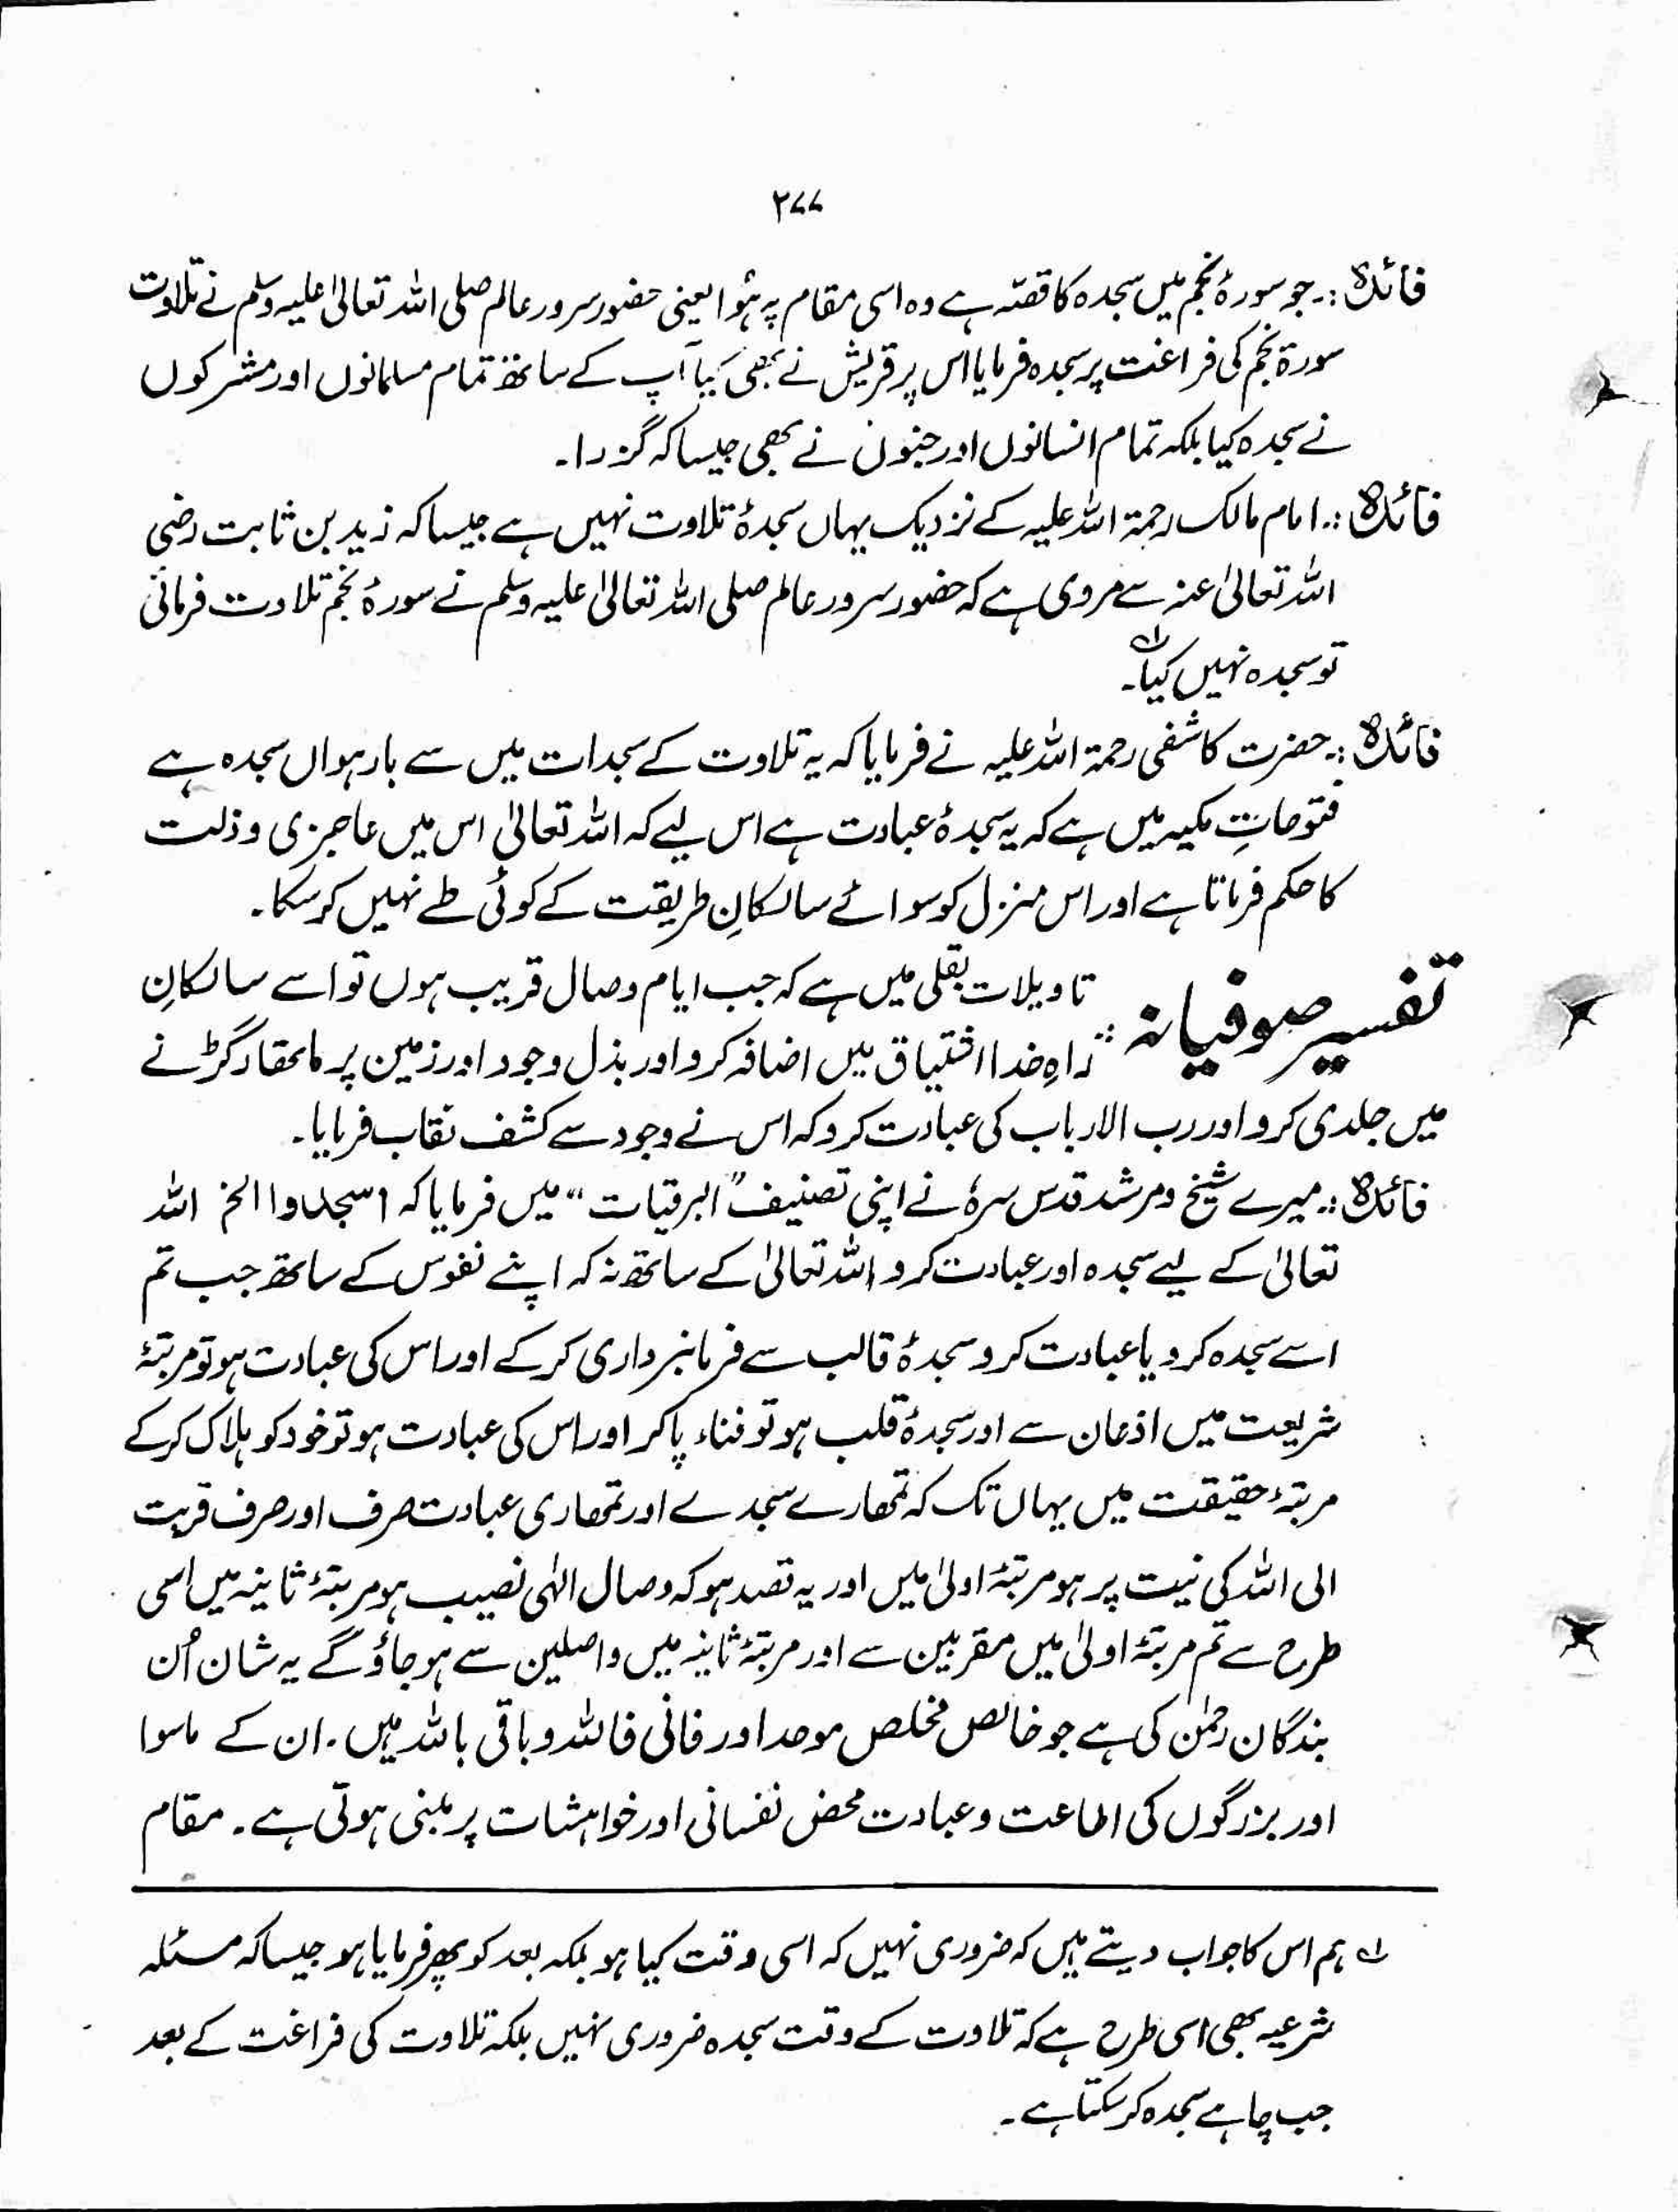 ۲۷۷
فائدہ :۔ جو سورۂ نجم میں سجدہ کا قصّہ ہے وہ اسی مقام پر ہُوا یعنی حضور سرور عالم صلی اللہ تعالیٰ علیہ وسلم نے تلاوت
سورۃ نجم کی فراغت پر سجدہ فرمایا اس پر قریش نے بھی کیا آپ کے ساتھ تمام مسلمانوں اور مشرکوں
نے سجدہ کیا بلکہ تمام انسانوں اور جنوں نے بھی جیسا کہ گزرا۔
فائدہ :۔ امام مالک رحمۃ اللہ علیہ کے نزدیک یہاں سجدۂ تلاوت نہیں ہے جیسا کہ زید بن ثابت رضی
اللہ تعالیٰ عنہ سے مروی ہے کہ حضور سرور عالم صلی اللہ تعالیٰ علیہ وسلم نے سورۂ نجم تلاوت فرمائی
تو سجدہ نہیں کیا ؎۱۔
فائدہ :۔ حضرت کاشفی رحمۃ اللہ علیہ نے فرمایا کہ یہ تلاوت کے سجدات میں سے بارہواں سجدہ ہے
فتوحاتِ مکیہ میں ہے کہ یہ سجدۂ عبادت ہے اس لیے کہ اللہ تعالیٰ اس میں عاجزی و ذلت
کا حکم فرماتا ہے اور اس منزل کو سوائے سالکانِ طریقت کے کوئی طے نہیں کر سکا۔
تفسیر صوفیانہ :۔ تاویلات بقلی میں ہے کہ جب ایام وصال قریب ہوں تو اسے سالکانِ
راہِ خدا اشتیاق میں اضافہ کرو اور بذل وجود اور زمین پر ماتھا رگڑنے
میں جلدی کرو اور رب الارباب کی عبادت کرو کہ اس نے وجود سے کشف نقاب فرمایا۔
فائدہ :۔ میرے شیخ و مرشد قدس سرہٗ نے اپنی تصنیف "البرقیات" میں فرمایا کہ اسجدوا الخ اللہ
تعالیٰ کے لیے سجدہ اور عبادت کرو اللہ تعالیٰ کے ساتھ نہ کہ اپنے نفوس کے ساتھ جب تم
اسے سجدہ کرو یا عبادت کرو سجدۂ قالب سے فرمانبرداری کر کے اور اس کی عبادت ہو تو مرتبۂ
شریعت میں اذعان سے اور سجدۂ قلب ہو تو فناء پا کر اور اس کی عبادت ہو تو خود کو ہلاک کر کے
مرتبۂ حقیقت میں یہاں تک کہ تمھارے سجدے اور تمھاری عبادت صرف اور صرف قربت
الی اللہ کی نیت پر ہو مرتبۂ اولیٰ میں اور یہ قصد ہو کہ وصال الٰہی نصیب ہو مرتبۂ ثانیہ میں اسی
طرح سے تم مرتبۂ اولیٰ میں مقربین سے اور مرتبۂ ثانیہ میں واصلین سے ہو جاؤ گے یہ شان اُن
بندگان رحمٰن کی ہے جو خالص مخلص موحد اور فانی فاللہ و باقی باللہ ہیں۔ ان کے ماسوا
اور بزرگوں کی اطاعت و عبادت محض نفسانی اور خواہشات پر مبنی ہوتی ہے۔ مقام
؎۱ ہم اس کا جواب دیتے ہیں کہ ضروری نہیں کہ اسی وقت کیا ہو بلکہ بعد کو پھر فرمایا ہو جیسا کہ مسئلہ
شرعیہ بھی اسی طرح ہے کہ تلاوت کے وقت سجدہ ضروری نہیں بلکہ تلاوت کی فراغت کے بعد
جب چاہے سجدہ کر سکتا ہے۔